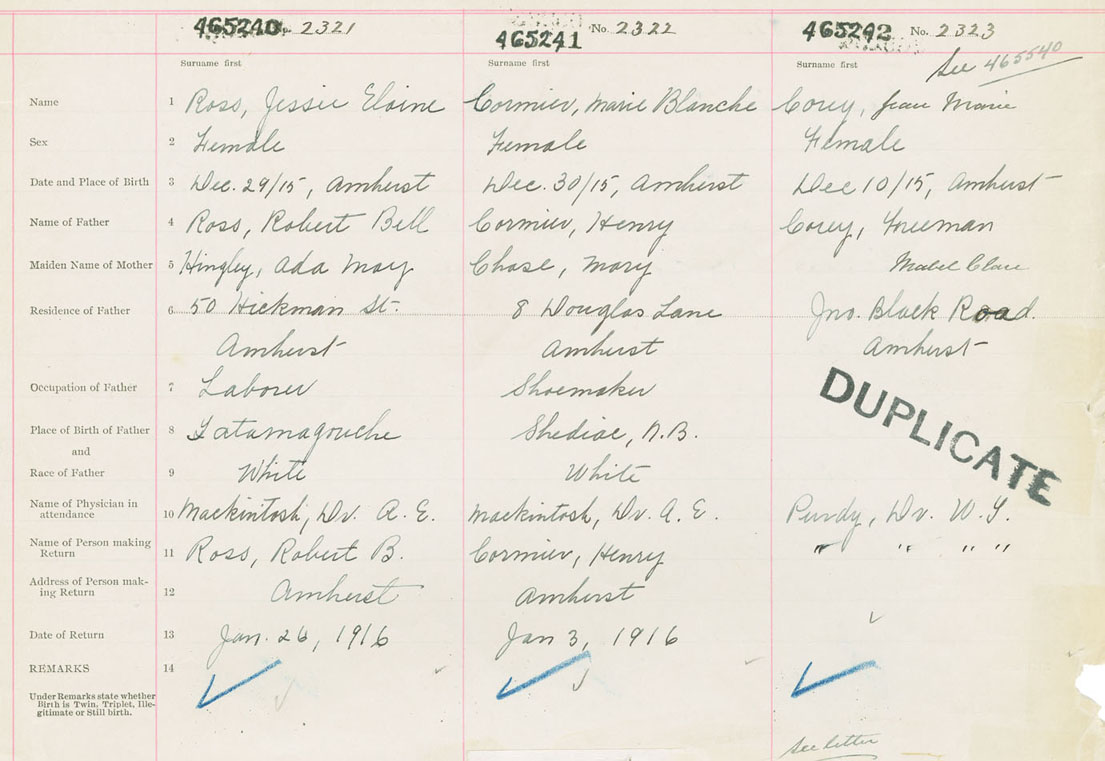 465240 No. 2321 465241 No. 2322 465242 No. 2323
Surname first Surname first Surname first See 465540
Name 1 Ross, Jessie Elaine Cormier, Marie Blanche Corey, Jean Marie
Sex 2 Female Female Female
Date and Place of Birth 3 Dec. 29/15, Amherst Dec. 30/15, Amherst Dec 10/15, Amherst
Name of Father 4 Ross, Robert Bell Cormier, Henry Corey, Freeman
Maiden Name of Mother 5 Hingley, Ada May Chase, Mary Mabel Clare
Residence of Father 6 50 Hickman St. 8 Douglas Lane Jno. Black Road.
Amherst Amherst Amherst
Occupation of Father 7 Laborer Shoemaker
DUPLICATE
Place of Birth of Father 8 Tatamagouche Shediac, N.B.
and
Race of Father 9 White White
Name of Physician in
attendance 10 Mackintosh, Dr. A. E. Mackintosh, Dr. A. E. Purdy, Dr. W. Y.
Name of Person making
Return 11 Ross, Robert B. Cormier, Henry " " " "
Address of Person mak-
ing Return 12 Amherst Amherst
Date of Return 13 Jan. 26, 1916 Jan 3, 1916
REMARKS 14
Under Remarks state whether
Birth is Twin, Triplet, Ille-
gitimate or Still birth.
See letter